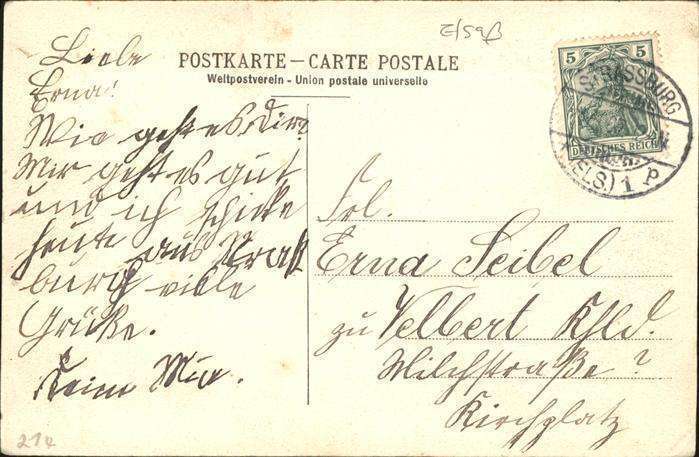 E/59β
POSTKARTE – CARTE POSTALE
Weltpostverein - Union postale universelle
Liebe
Erna!
Wie geht es Dir?
Mir geht es gut
und ich schicke
heute aus Straß
burg viele
Grüße.
5 5
DEUTSCHES REICH
STRASSBURG
(ELS.) 1
Frl.
Erna Seibel
zu Velbert Rhld.
Milchstraße ?
Kirchplatz
21e